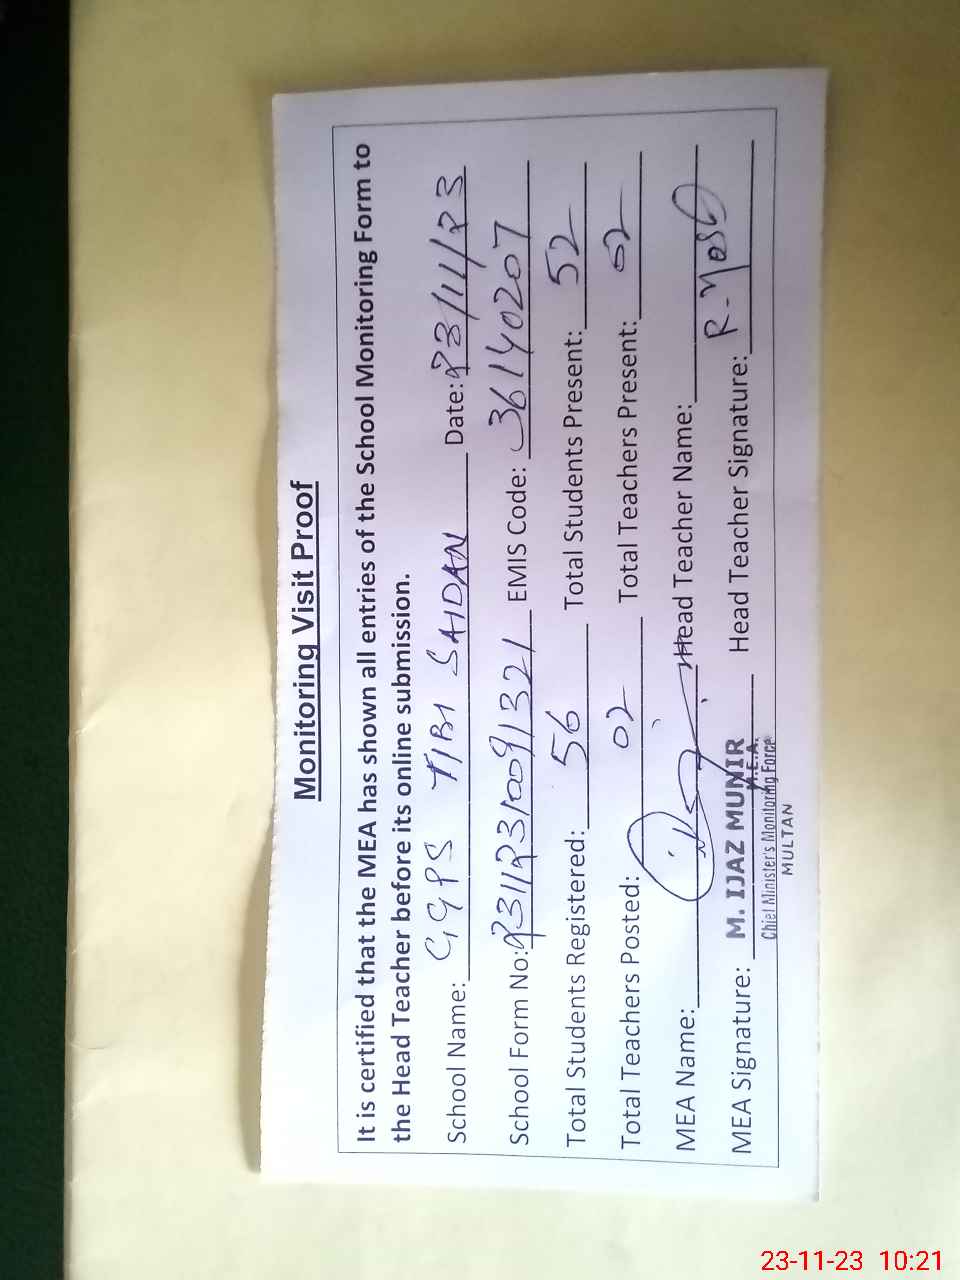 Monitoring Visit Proof
It is certified that the MEA has shown all entries of the School Monitoring Form to
the Head Teacher before its online submission.
School Name: GGPS TIBI SAIDAN Date: 23/11/23
School Form No: 23112310091321 EMIS Code: 36140207
Total Students Registered: 56 Total Students Present: 52
Total Teachers Posted: 02 Total Teachers Present: 02
MEA Name: Head Teacher Name:
MEA Signature: M. IJAZ MUNIR Head Teacher Signature:
M.E.A.
Chief Minister's Monitoring Force
MULTAN
23-11-23 10:21